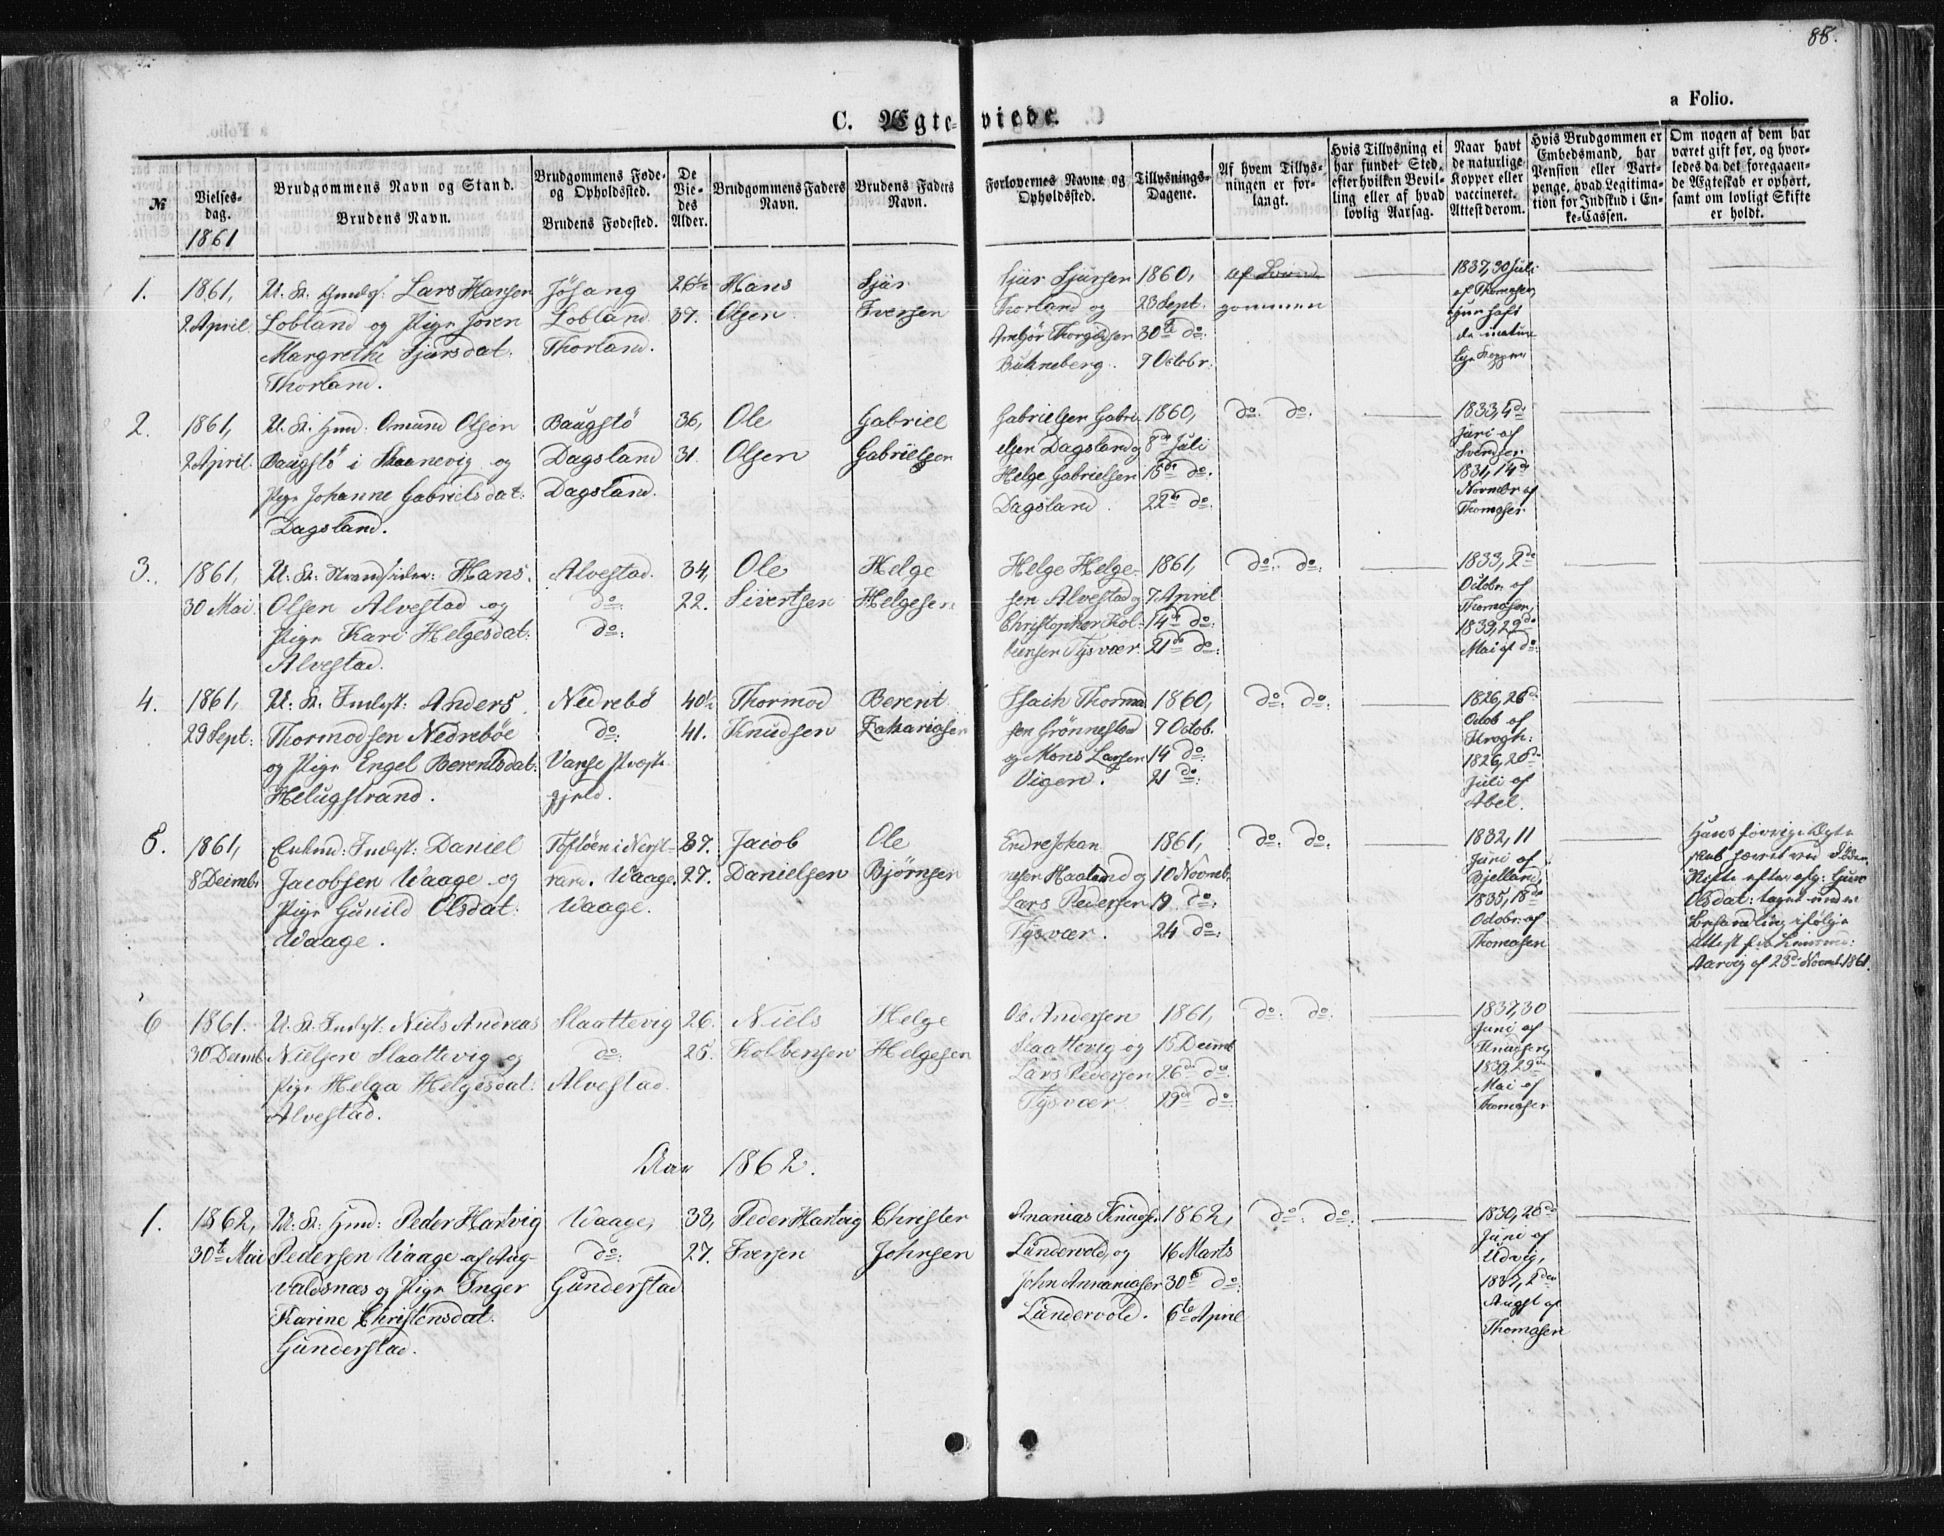 88.
a Folio.
C. Ægteviede.
№
Vielsesdag.
1861
Brudgommens Navn og Stand.
Brudens Navn.
Brudgommens Føde- og Opholdssted.
Brudens Fødested.
De Viedes Alder.
Brudgommens Faders Navn.
Brudens Faders Navn.
Forlovernes Navne og Opholdssted.
Tillysnings-Dagene.
Af hvem Tillysningen er forlangt.
Hvis Tillysning ei har fundet Sted, efter hvilken Bevilling eller af hvad lovlig Aarsag.
Naar havt de naturlige Kopper eller vaccineret. Attest derom.
Hvis Brudgommen er Embedsmand, har Pension eller Vartpenge, hvad Legitimation for Indskud i Enke-Cassen.
Om nogen af dem har været gift før, og hvorledes da det foregaaende Ægteskab er ophørt, samt om lovligt Skifte er holdt.
1. 1861, U. K. Lars Hansen Jøsang 26½ Hans Sjur Sjur Sjursen 1860, 1837, 30 Juli
2 April. Lobland og Pige Joren Lobland 37. Olsen Iversen Thorland og 23 Sept. gommen af Thomasen,
Margrethe Sjursdat: Thorland. Thorgilsen 30te do:
Thorland. 7 Octobr: Kopper
2. 1861, U. K. Omund Olsen Baugstø 36, Ole Gabriel Gabrielsen Gabri- 1860, do: do: 1833, 4de
2 April. Baugstø i Skaanevig og Dagsland 31. Olsen Gabrielsen elsen Dagsland og 8de Juli Juni af Svendsen
Pige Johanne Gabrielsdat: Dagsland. Helge Gabrielsen 15de do: 1831, 14de
Dagsland. Dagsland. 22de do: Novembr af Thomasen
3. 1861, U. K. Strandsider: Hans Alvestad. 34, Ole Helge Helge Helge- 1861, do: do: 1833, 2de
30 Mai. Olsen Alvestad og do: 22. Sivertsen Helgesen sen Alvestad og 7 April Octobr. af Thomasen,
Pige Kari Helgesdat: do: Christopher Kol- 14de do: 1839, 29de
Alvestad. Tysvær. 21de do: Mai af do:
4. 1861, U. K. Inderst: Anders Nedrebø 40½ Thormod Berent Isach Thormod- 1860, do: do: 1826, 26de
29 Sept: Thormodsen Nedrebøe do: 41. Knudsen Zakariasen sen Grønnestad 7 Octob. Octob af Krogh:
og Pige Engel Berentsdat: Vanse Præste- og Mons Larsen 14 do: 1826, 26de
Helugstrand. gjeld. Vigen. 21 do: Juli af Abel.
5. 1861, Enkem: Inderst: Daniel Toftøen i Nerst- 37. Jacob Ole Endre Johan- 1861, do: do: 1832, 11 Hans forrige Ægte-
8 Decembr Jacobsen Waage og rand. Waage. 27. Danielsen Bjørnsen nesen Haaland og 10 Novemb. Juni af Bjelland, skab hævet ved Døden.
Pige Gunild Olsdat: Waage. Lars Pedersen 19 do: 1835, 18de Skifte efter
Waage. Tysvær. 24 do: Octobr: af Thomasen Olsdat: taget under
Behandling ifølge
Attest fra
Aarvig af 25de Novemb. 1861.
6 1861. U. K. Inderst: Niels Andreas Slaattevig 26. Niels Helge Ole Andersen 1861, do: do: 1837, 30
30 Decemb. Nielsen Slaattevig og do: 25. Kolbensen Helgesen Slaattevig og 15 Decemb Juni af Knudsen,
Pige Helga Helgesdat: Alvestad. Lars Pedersen 26de do: 1839, 29de
Alvestad. Tysvær. 29de do: Mai af Thomasen
Aar 1862.
1. 1862, U. K. Peder Hartvig Waage, 33, Peder Hartvig Christen Ananias Knudsen 1862, do: do: 1830, 26de
30te Mai Pedersen Waage af Aug- do: 27. Iversen Johnsen Lundervold, og 16 Marts Juni af Udvig,
valdsnæs og Pige Inger Gunderstad. John Annaniasen 30te do: 1837, 2den
Karine Christensdat: Lundervold. 6te April August af
Gunderstad. Thomasen